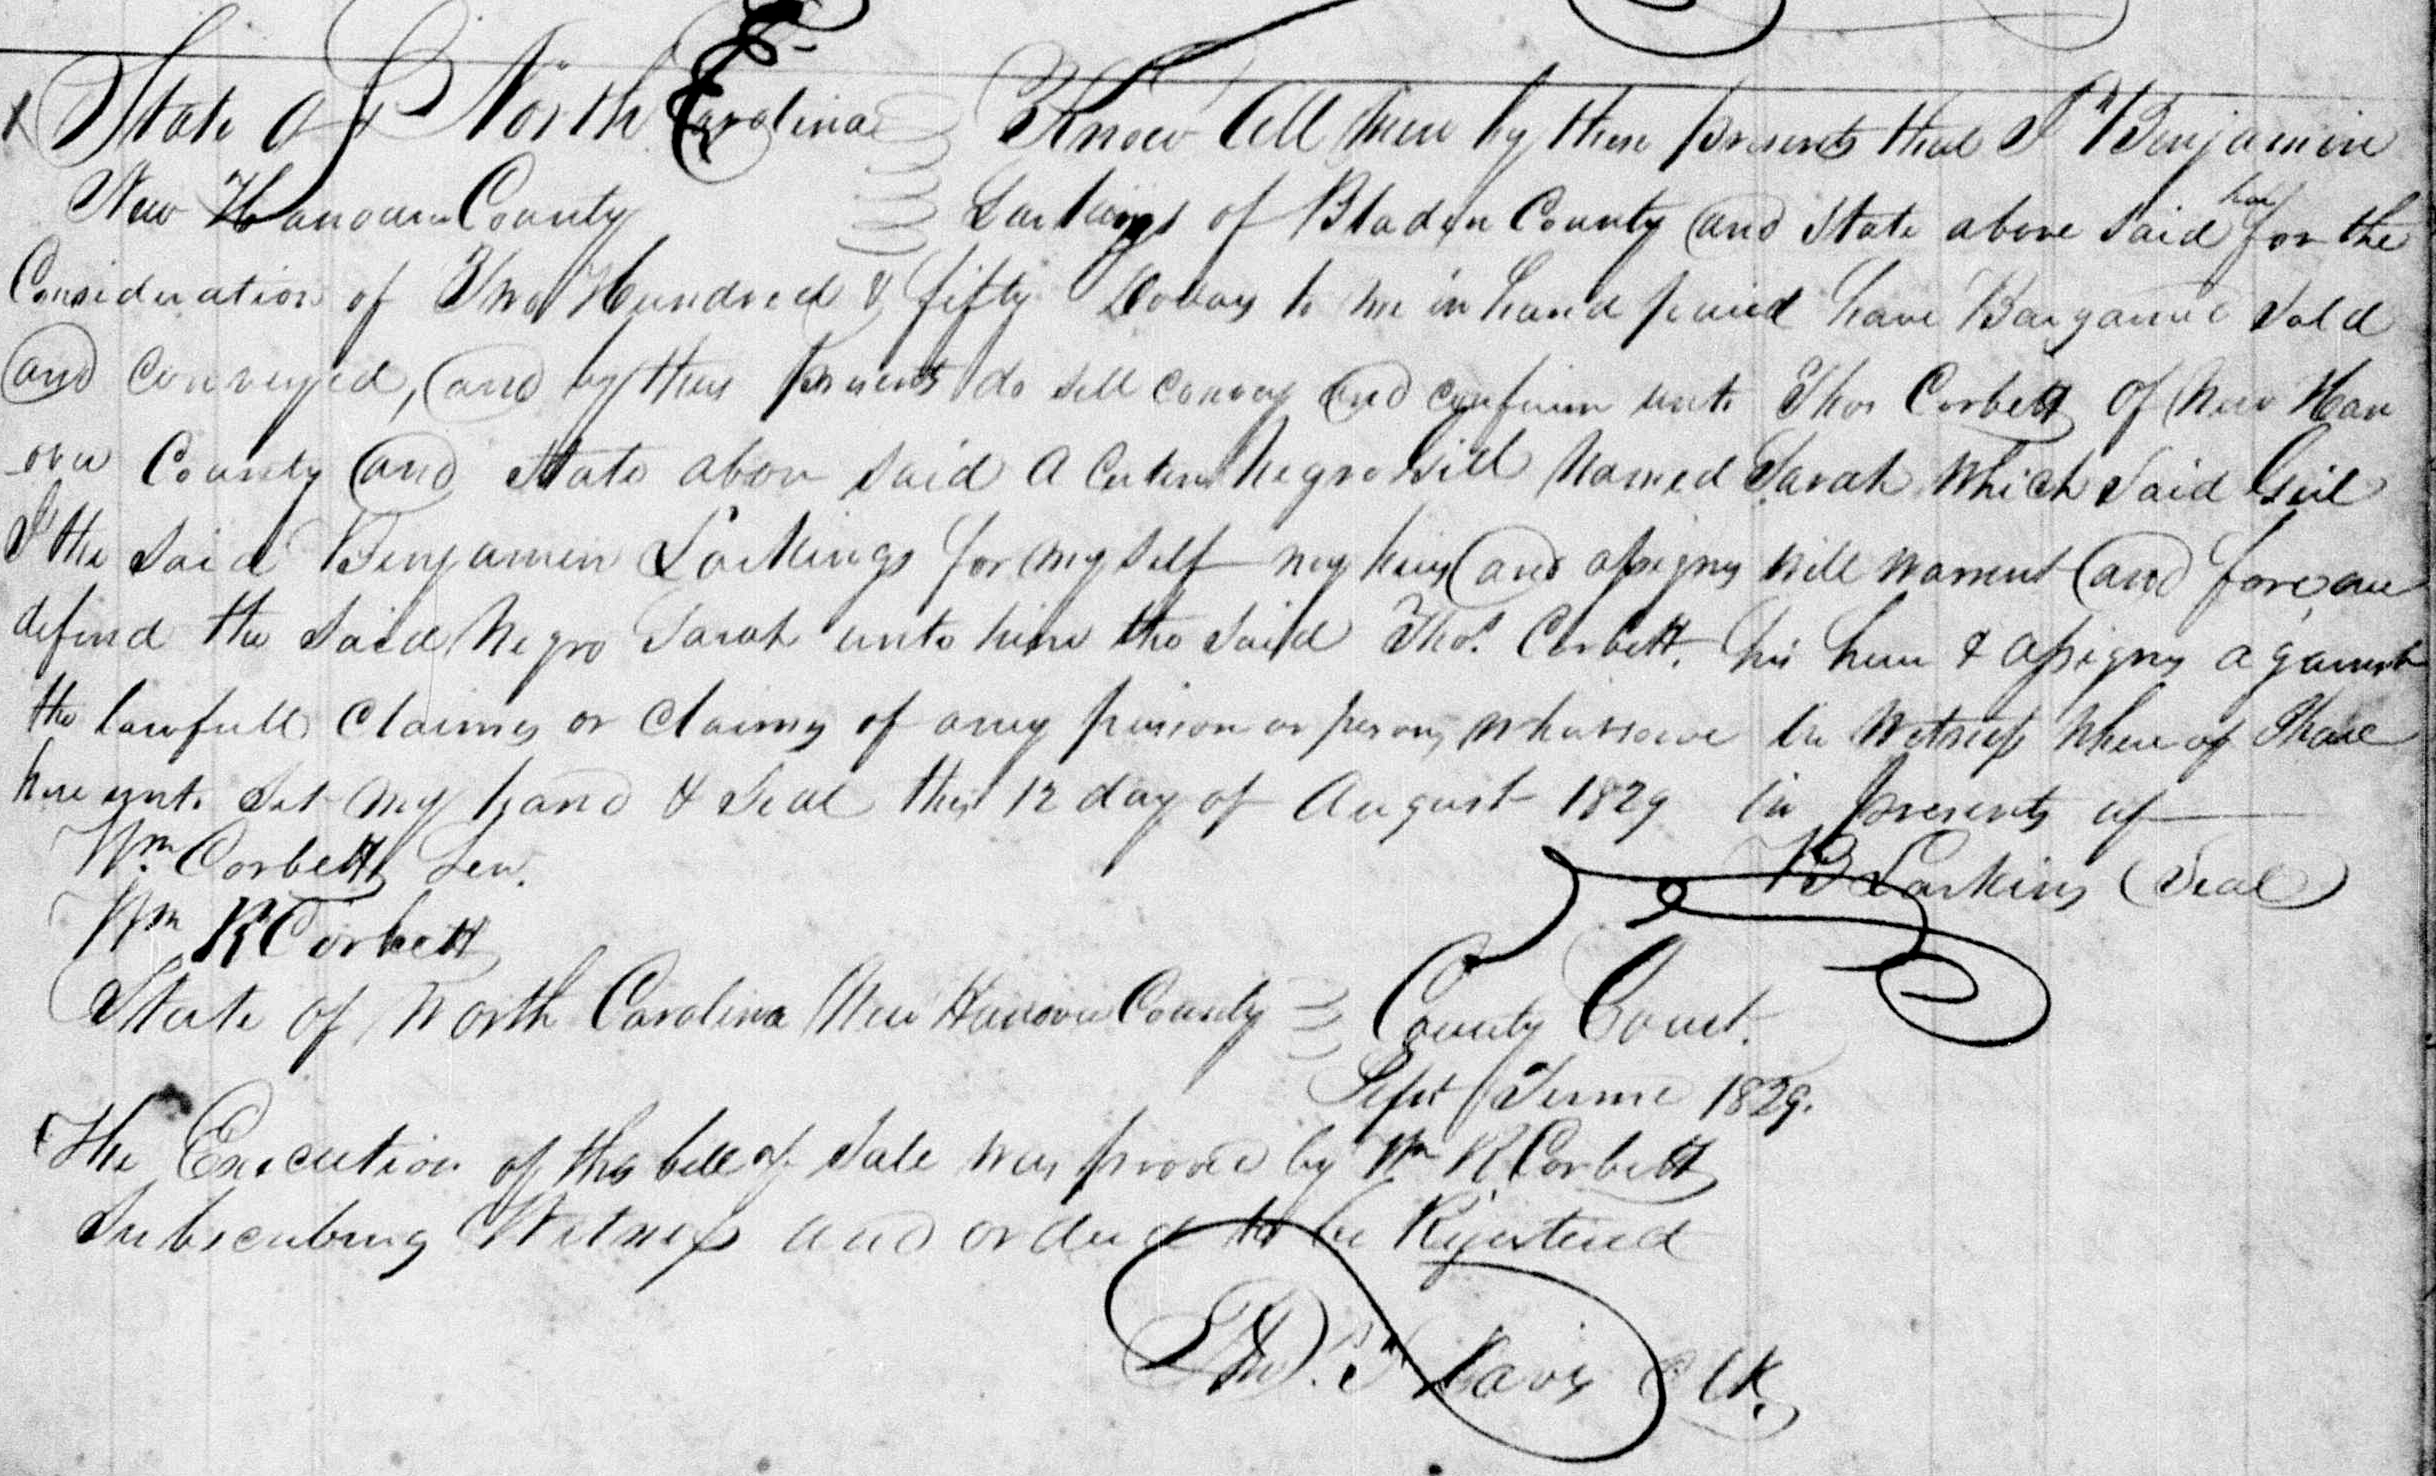 State of North Carolina Know all men by these presents that I Benjamin
New Hanover County Larkings of Bladen County and State above said for the
Consideration of Two Hundred & fifty Dollars to me in hand paid have Bargained Sold
and conveyed, and by these presents do sell convey and confirm unto Thos Corbett of New Han
-over County and State above said a certain Negro Girl Named Sarah which said Girl
I the said Benjamin Larkings for myself my heirs and assigns will warrent and forever
defend the said Negro Sarah unto him the said Thos. Corbett. his heirs & assigns against
the lawfull claims or claims of any person or persons whatsoever In Witness whereof I have
hereunto Set my hand & Seal this 12 day of August 1829 in presents of
Wm. Corbett Sen. B Larkins (Seal)
Wm R Corbett
State of North Carolina New Hanover County County Court.
Sept Terme 1829.
The Execution of this bill of Sale was proved by Wm R Corbett
Subscribing Witness and ordered to be Registered
Thos. F Davis Clk.